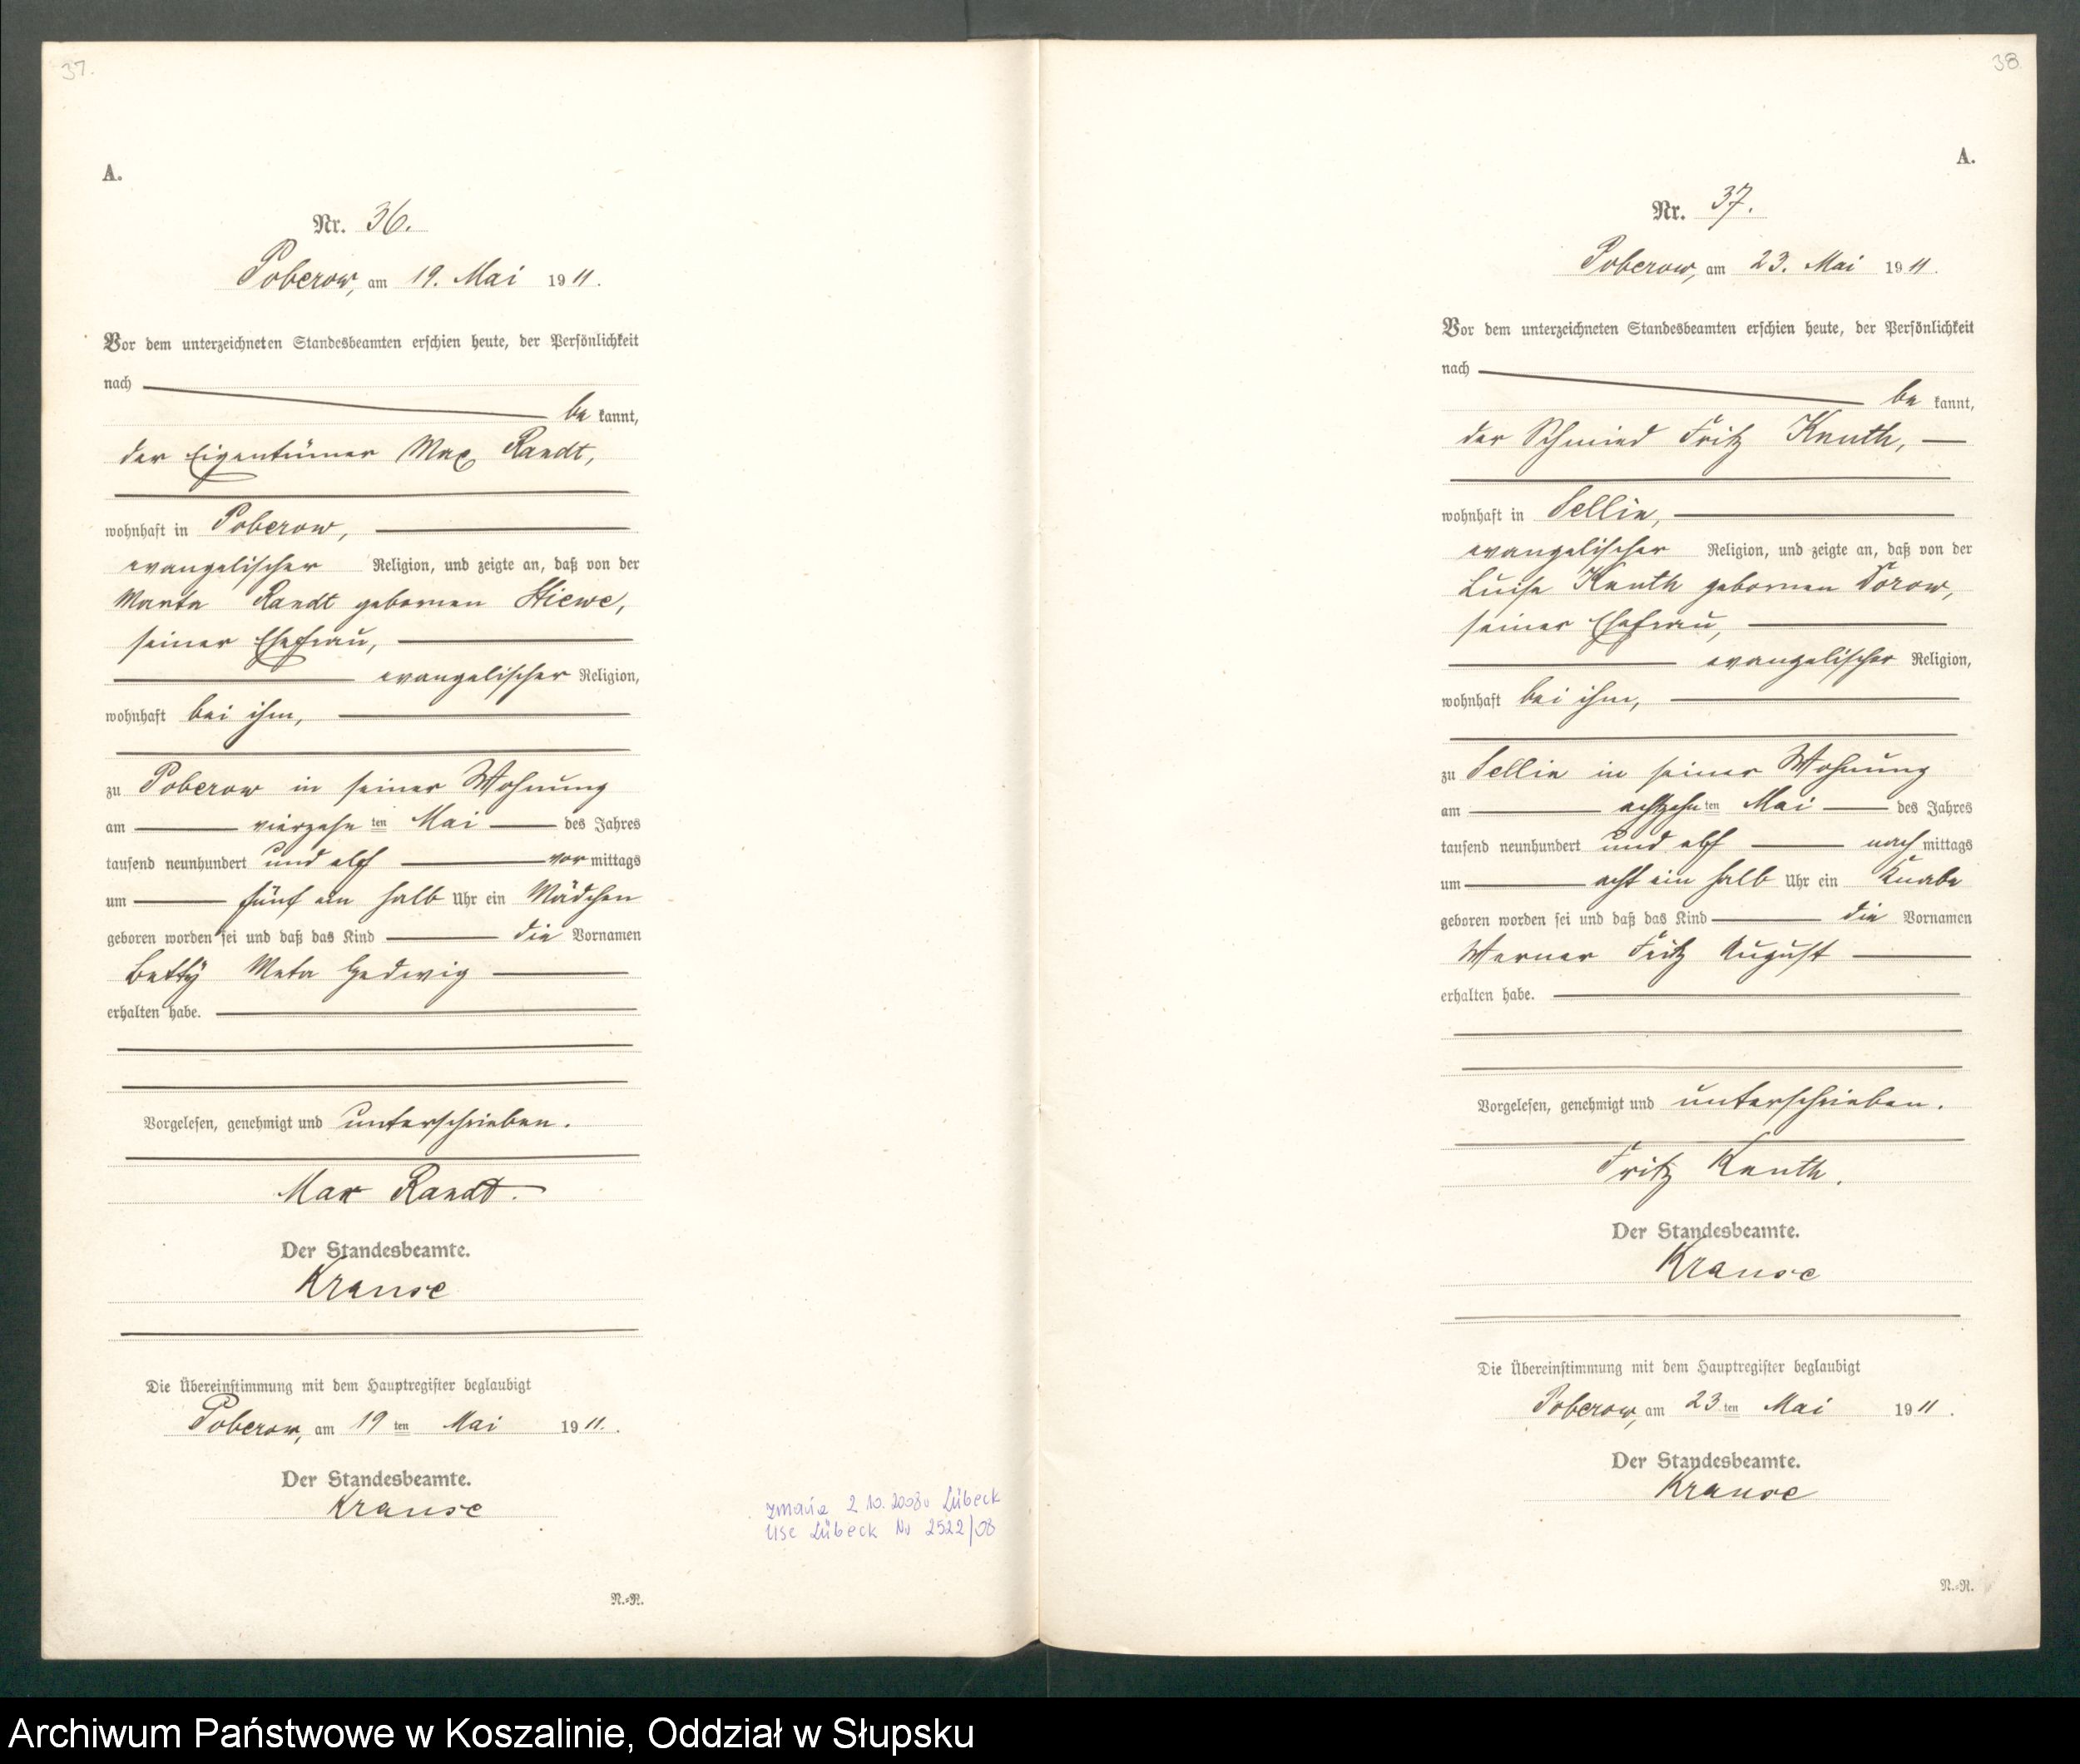 37.
A.
Nr. 36.
Poberow, am 19. Mai 1911.
Vor dem unterzeichneten Standesbeamten erschien heute, der Persönlichkeit
nach
be kannt,
der Eigentümer Max Randt,
wohnhaft in Poberow,
evangelischer Religion, und zeigte an, daß von der
Marta Randt gebornen Stiewe,
seiner Ehefrau,
evangelischer Religion,
wohnhaft bei ihm,
zu Poberow in seiner Wohnung
am vierzehn ten Mai des Jahres
tausend neunhundert und elf vor mittags
um fünf ein halb Uhr ein Mädchen
geboren worden sei und daß das Kind die Vornamen
Betty Meta Hedwig
erhalten habe.
Vorgelesen, genehmigt und unterschrieben.
Max Randt.
Der Standesbeamte.
Krause
Die Übereinstimmung mit dem Hauptregister beglaubigt
Poberow, am 19 ten Mai 1911.
Der Standesbeamte.
Krause
zmarła 2.10.2008 Lübeck
USC Lübeck Nr 2522/08
N.=N.
38.
A.
Nr. 37.
Poberow, am 23. Mai 1911.
Vor dem unterzeichneten Standesbeamten erschien heute, der Persönlichkeit
nach
be kannt,
der Schmied Fritz Knuth,
wohnhaft in Sellin,
evangelischer Religion, und zeigte an, daß von der
Luise Knuth gebornen Dorow,
seiner Ehefrau,
evangelischer Religion,
wohnhaft bei ihm,
zu Sellin in seiner Wohnung
am achtzehn ten Mai des Jahres
tausend neunhundert und elf nach mittags
um acht ein halb Uhr ein Knabe
geboren worden sei und daß das Kind die Vornamen
Werner Fritz August
erhalten habe.
Vorgelesen, genehmigt und unterschrieben.
Fritz Knuth.
Der Standesbeamte.
Krause
Die Übereinstimmung mit dem Hauptregister beglaubigt
Poberow, am 23 ten Mai 1911.
Der Standesbeamte.
Krause
N.=N.
Archiwum Państwowe w Koszalinie, Oddział w Słupsku